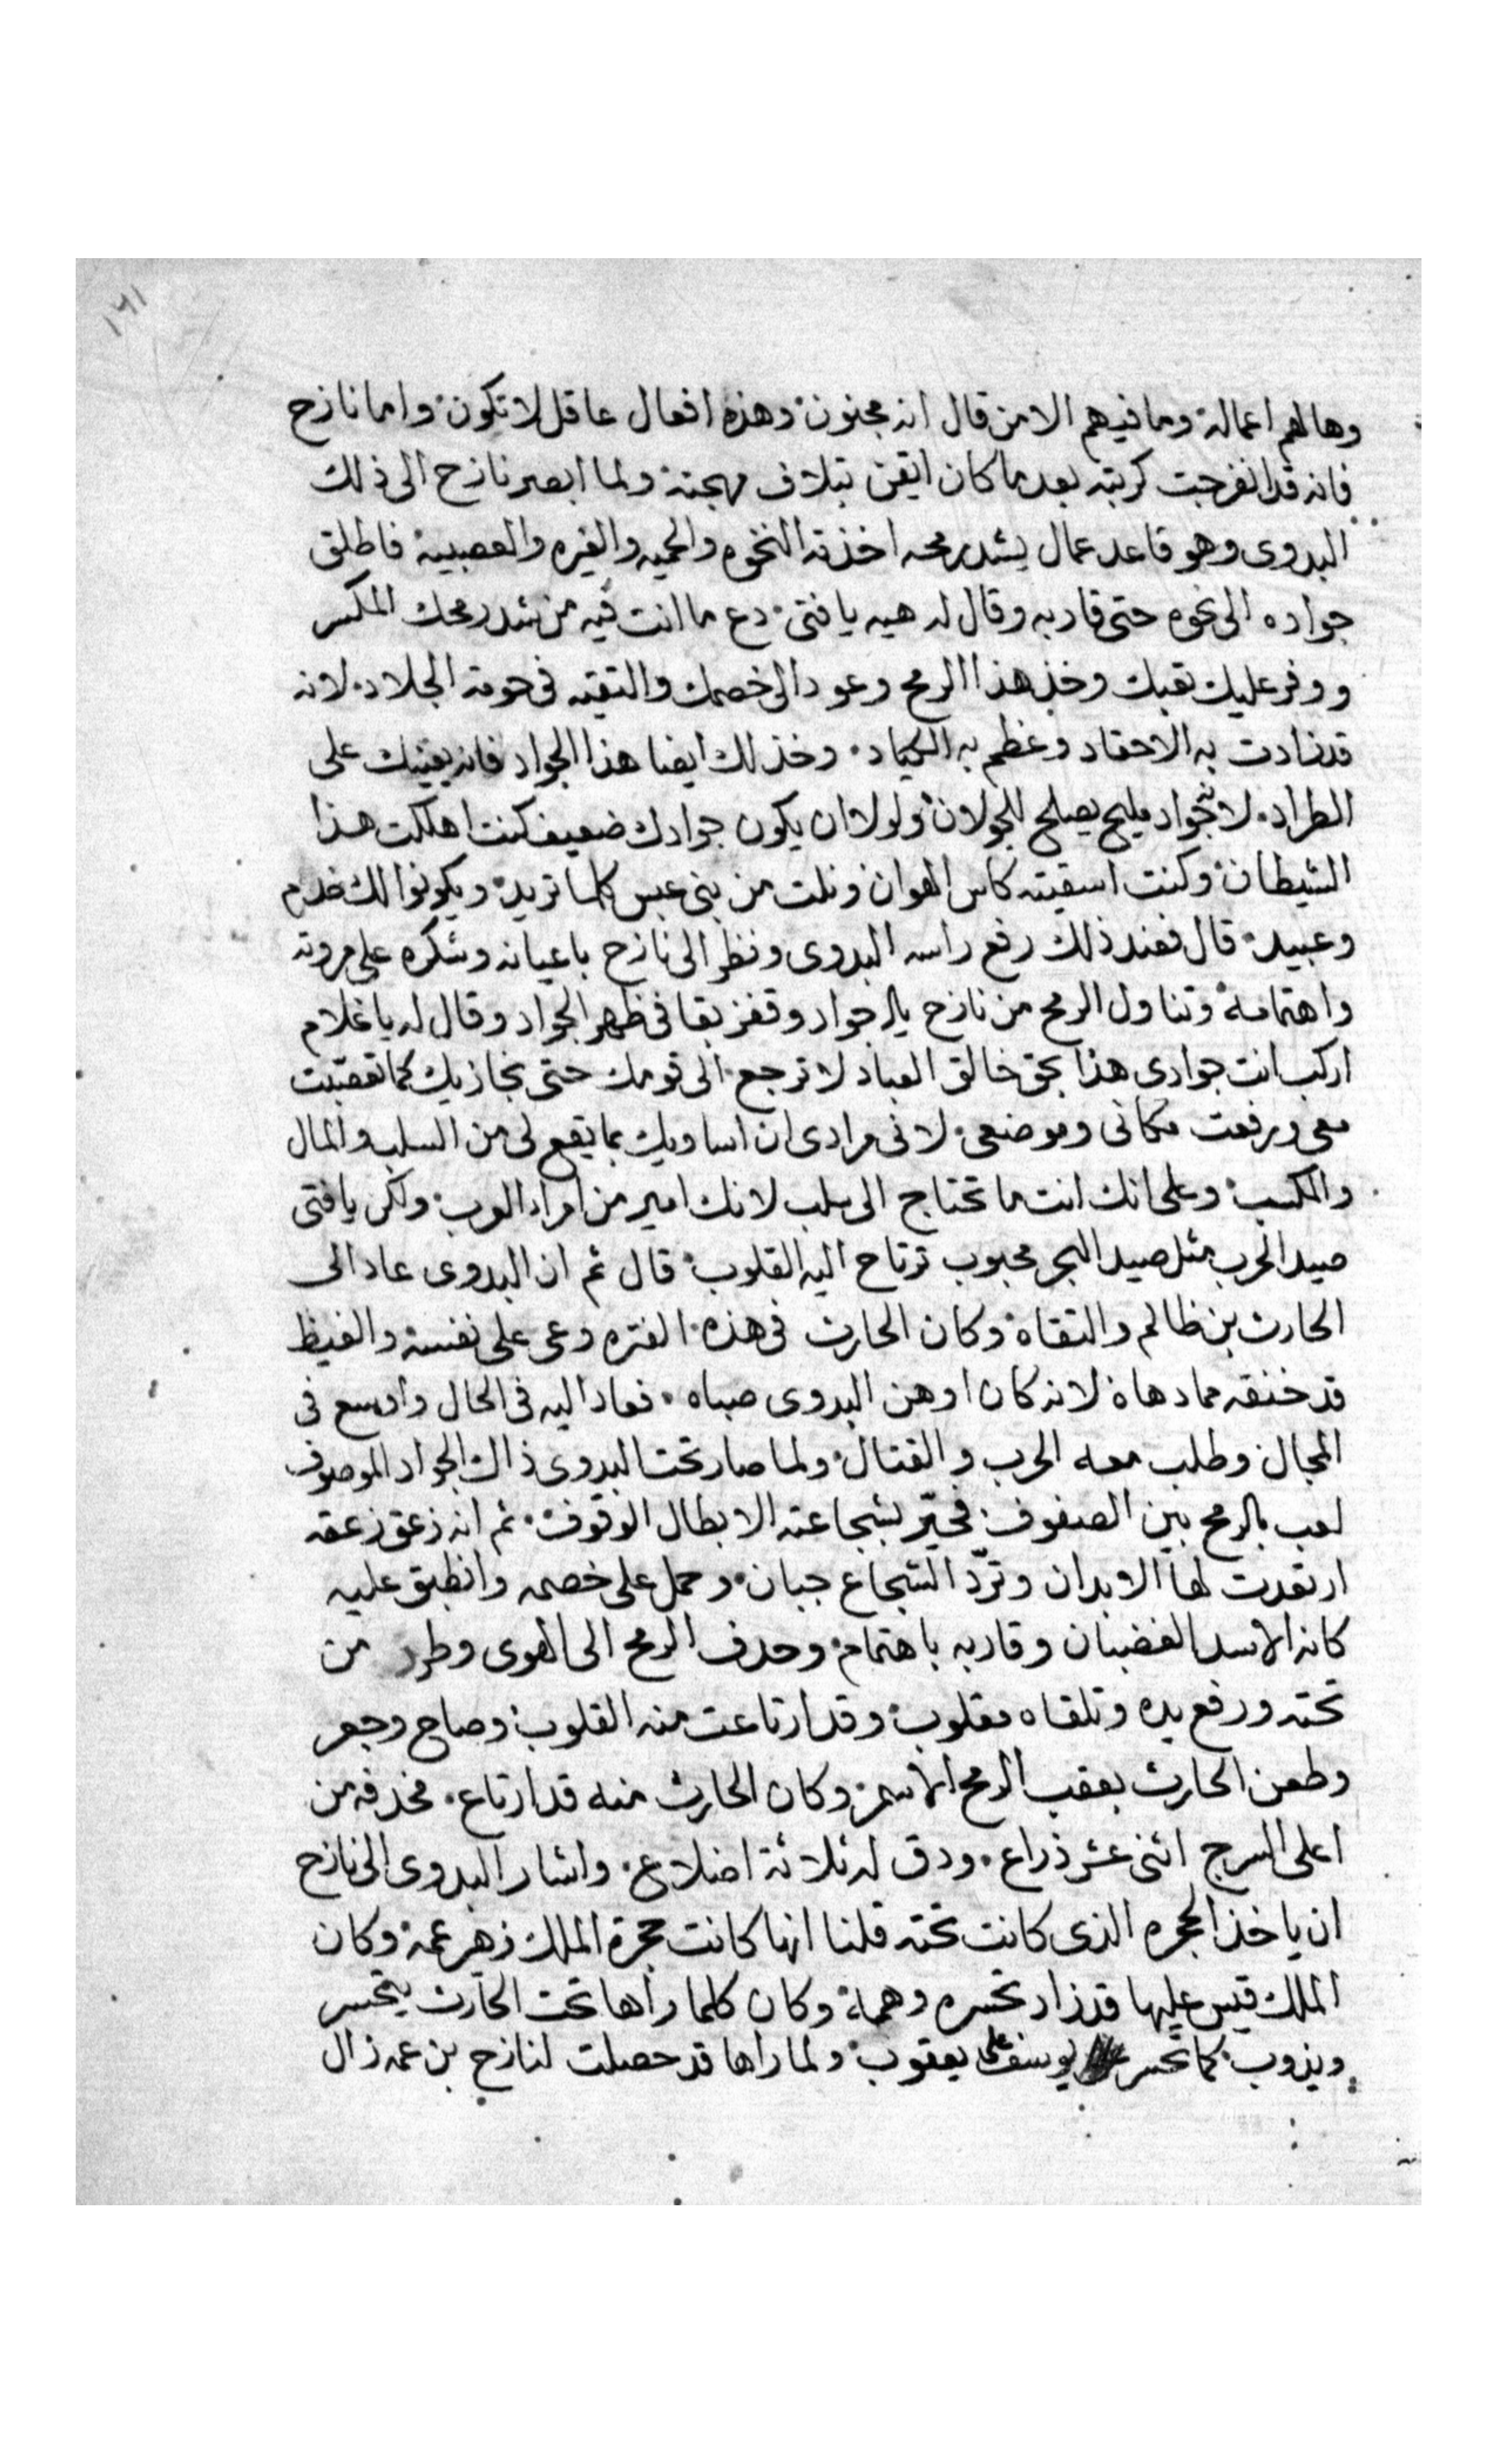 ١٦١
وهالهم اعماله وما فيهم الا من قال انه مجنون وهذه افعال عاقل لا تكون واما نازح
فانه قد انفرجت كربته بعد ما كان ايقن بتلاف مهجته ولما ابصر نازح الى ذلك
البدوى وهو قاعد عمال يشد رمحه اخذته النخوه والحميه والغيره والعصبية فاطلق
جواده الى نحوه حتى قاربه وقال له هيه يا فتى دع ما انت فيه من شد رمحك المكسر
ووفر عليك تعبك وخذ هذا الرمح وعود الى خصمك والتقيه فى حومة الجلاد لانه
قد زادت به الاحقاد وعظم به الكياد وخذ لك ايضا هذا الجواد فانه يعينك على
الطراد لانه جواد مليح يصلح للجولان ولولا ان يكون جوادك ضعيف كنت اهلكت هذا
الشيطان وكنت اسقيته كاس الهوان ونلت من بنى عبس كلما تريد ويكونوا لك خدم
وعبيد قال فعند ذلك رفع راسه البدوى ونظر الى نازح باعيانه وشكره على مروته
واهتمامه وتناول الرمح من نازح والجواد وقفز بقا فى ظهر الجواد وقال له يا غلام
اركب انت جوادى هذا بحق خالق العباد لا ترجع الى قومك حتى نجازيك كما تعصبت
معى ورفعت مكانى وموضعى لانى مرادى ان اساويك بما يقع لى من السلب والمال
والمكسب وعلى انك انت ما تحتاج الى سلب لانك امير من امراء العرب ولكن يا فتى
صيد الحرب مثل صيد البحر محبوب ترتاح اليه القلوب قال ثم ان البدوى عاد الى
الحارث بن ظالم والتقاه وكان الحارث فى هذه الفتره وعى على نفسه والغيظ
قد خنقه مما دهاه لانه كان اوهن البدوى صباه فعاد اليه فى الحال واوسع فى
المجال وطلب معه الحرب والقتال ولما صار تحت البدوى ذاك الجواد الموصوف
لعب بالرمح بين الصفوف فحيّر بشجاعته الابطال الوقوف ثم انه زعق زعقه
ارتعدت لها الابدان وتردّ الشجاع جبان وحمل على خصمه وانطبق عليه
كانه الاسد الغضبان وقاربه باهتمام وحدف الرمح الى الهوى وطرد من
تحته ورفع يده وتلقاه مقلوب وقد ارتاعت منه القلوب وصاح وجعر
وطعن الحارث بعقب الرمح الاسمر وكان الحارث منه قد ارتاع فحذفه من
اعلى السرج اثنى عشر ذراع ودق له ثلاثة اضلاع واشار البدوى الى نازح
ان ياخذ الحجره الذى كانت تحته قلنا انها كانت حجرة الملك زهير عمه وكان
الملك قيس عليها قد زاد تحسره وهمه وكان كلما راها تحت الحارث يتحسر
ويذوب كما تحسر على يوسف يعقوب ولما راها قد حصلت لنازح بن عمه زال